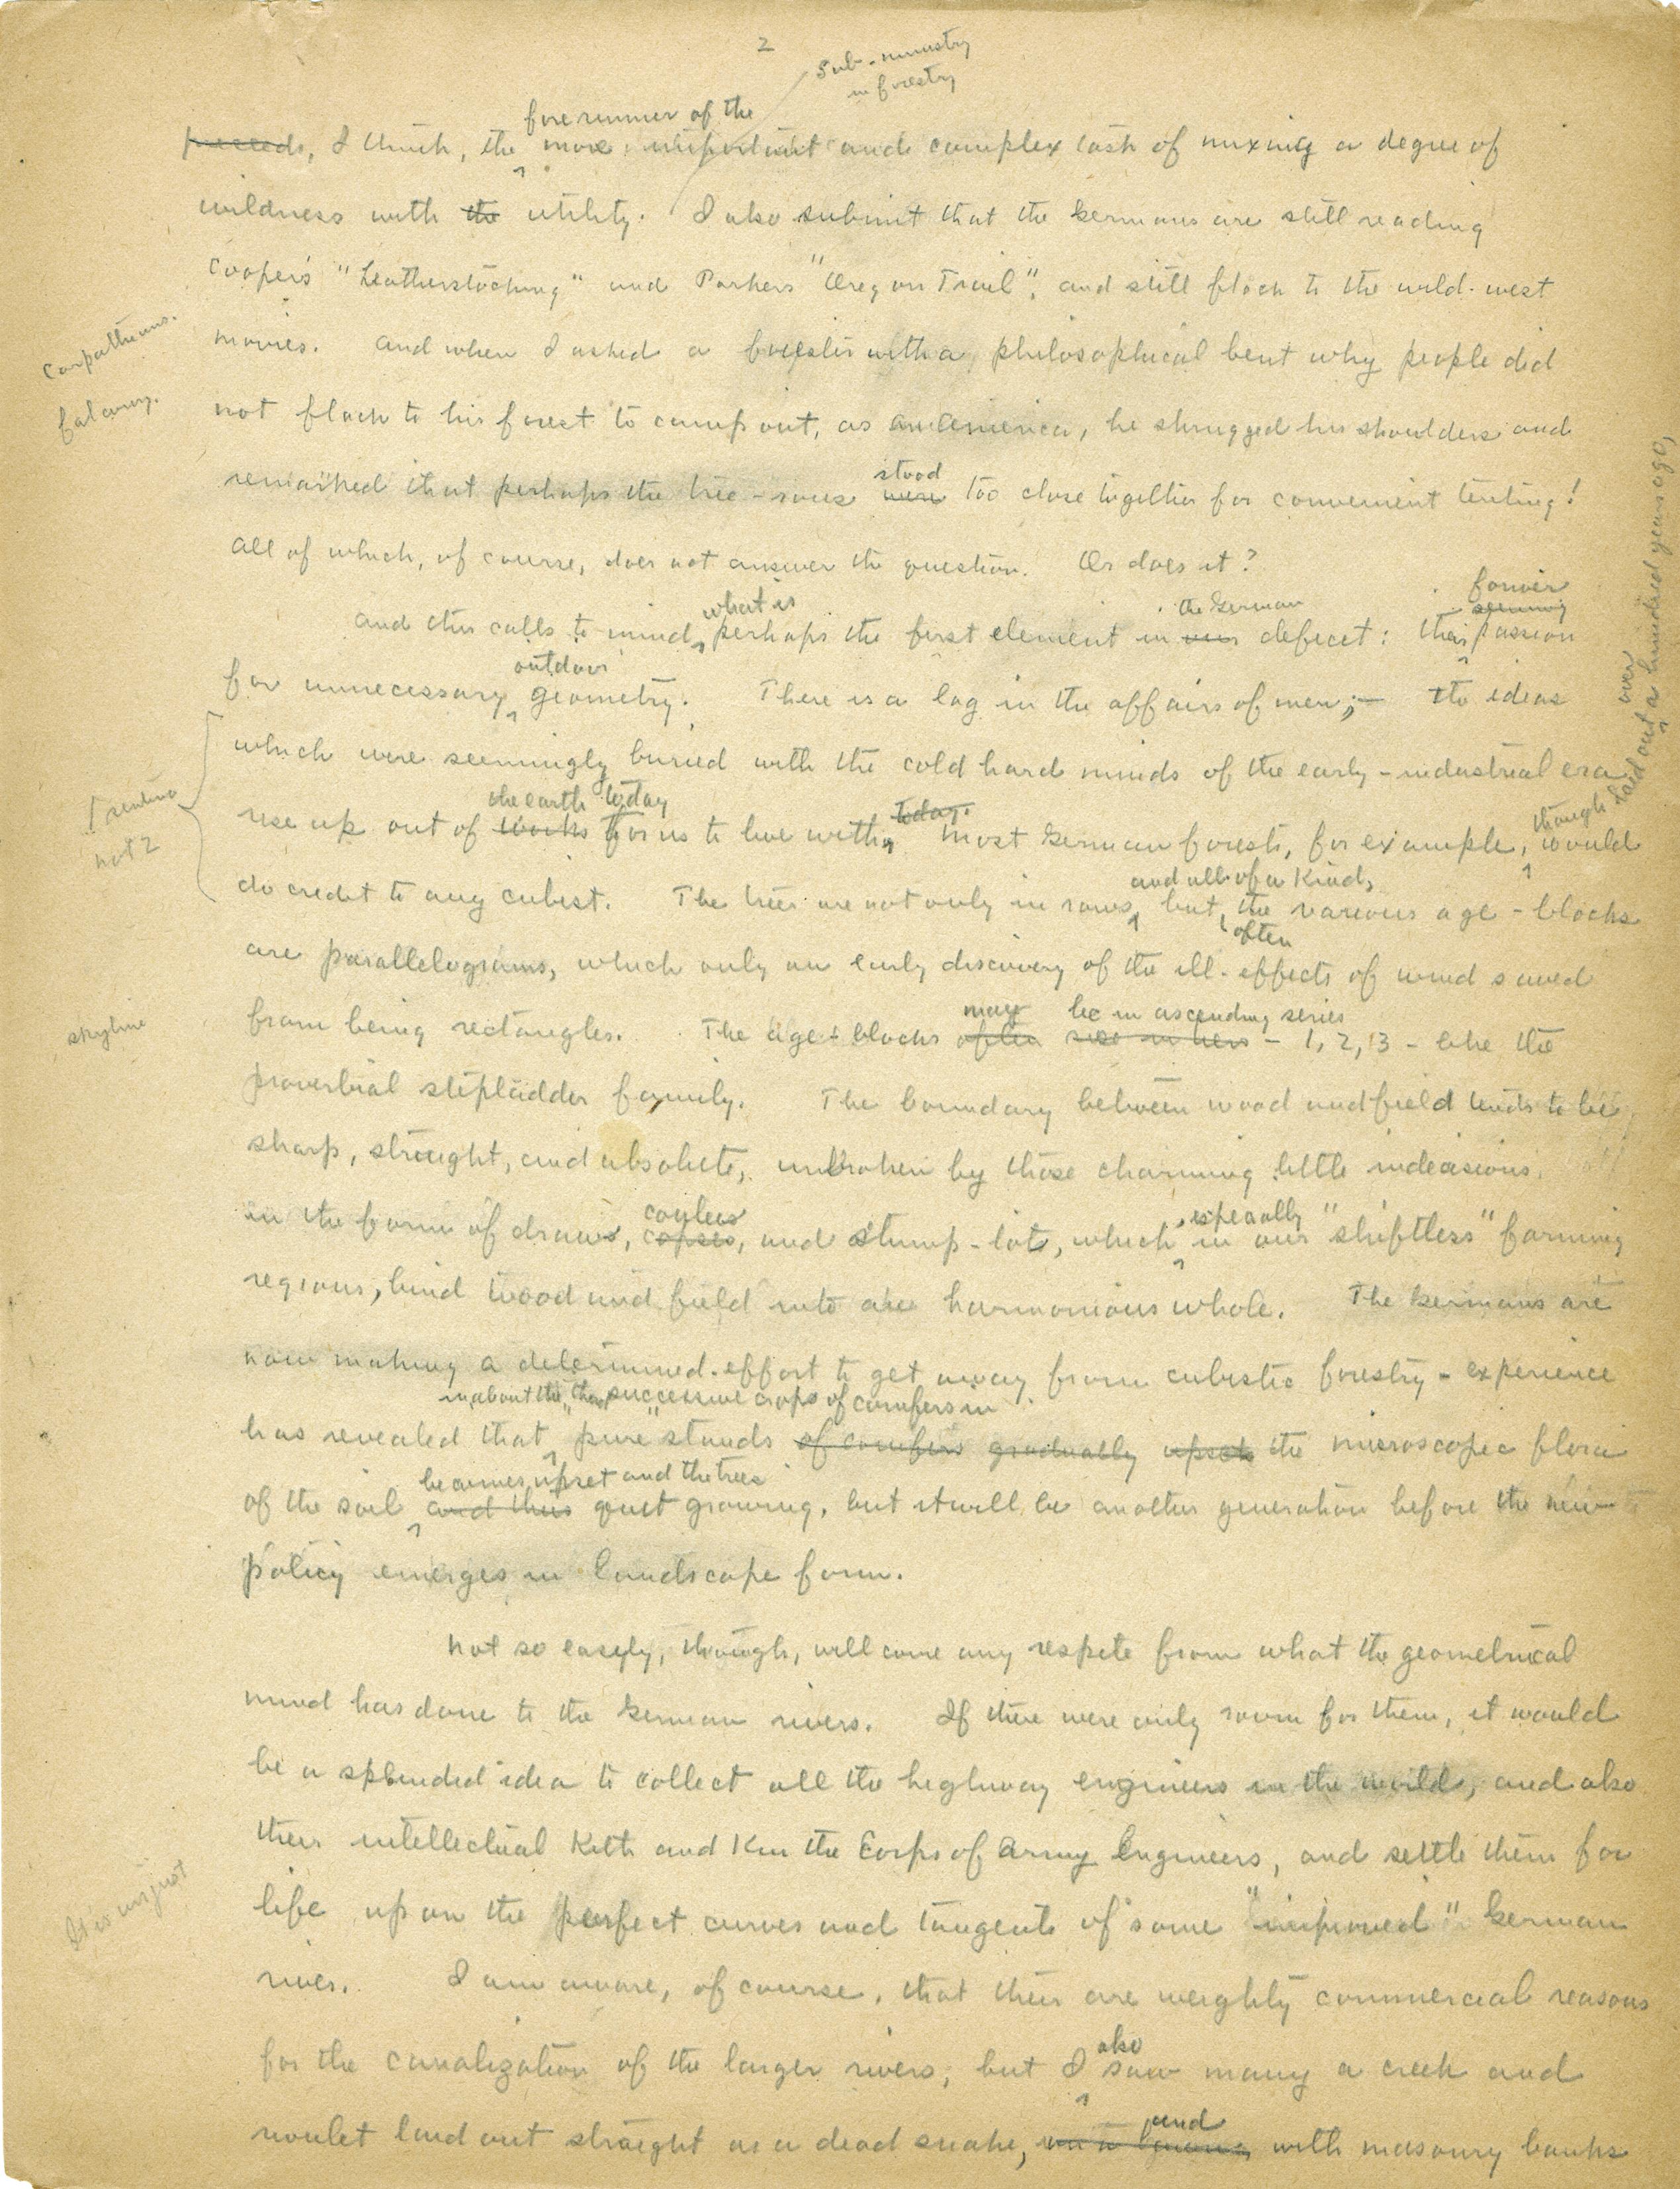 2
sub-ministry
in forestry
forerunner of the
preceeds, I think, the more important and complex task of mixing a degree of
wildness with the utility. I also submit that the Germans are still reading
Cooper's "Leatherstocking" and Parkers "Oregon Trail", and still flock to the wild-west
movies. And when I asked a forester with a philosophical bent why people did
Carpathians.
not flock to his forest to camp out, as in America, he shrugged his shoulders and
stood
remarked that perhaps the tree-rows were too close together for convenient tenting!
All of which, of course, does not answer the question. Or does it?
what is the German former
seeming
And this calls to mind perhaps the first element in our deficit: their passion
outdoor
for unnecessary geometry. There is a lag in the affairs of men;- the ideas
which were seemingly buried with the cold hard minds of the early-industrial era
1 sentence
not 2
the earth today today.
rise up out of for us to live with. Most German forests, for example, would
though laid out over a hundred years ago,
do credit to any cubist. The trees are not only in rows, but the various age-blocks
and all of a kind,
often
are parallelograms, which only an early discovery of the ill-effects of wind saved
skyline
may be in ascending series
from being rectangles. The age-blocks often - 1, 2, 3 - like the
proverbial stepladder family. The boundary between wood and field tends to be
sharp, straight, and absolute, unbroken by those charming little indecisions
coulees especially
in the form of draws, copses, and stump-lots, which in our "shiftless" farming
regions, bind wood and field into an harmonious whole. The Germans are
now making a determined effort to get away from cubistic forestry - experience
in about the third successive crops of conifers in
has revealed that "pure" stands of conifers gradually upset the microscopic flora
becomes upset and the trees
of the soil and thus quit growing, but it will be another generation before the new
policy emerges in landscape form.
Not so easily, though, will come any respite from what the geometrical
mind has done to the German rivers. If there were only room for them, it would
be a splendid idea to collect all the highway engineers in the world, and also
their intellectual Kith and Kin the Corps of Army Engineers, and settle them for
It is unjust
life upon the perfect curves and tangents of some "improved" German
river. I am aware, of course, that their are weighty commercial reasons
also
for the canalization of the larger rivers, but I saw many a creek and
and
rivulet laid out straight as a dead snake, with masonry banks